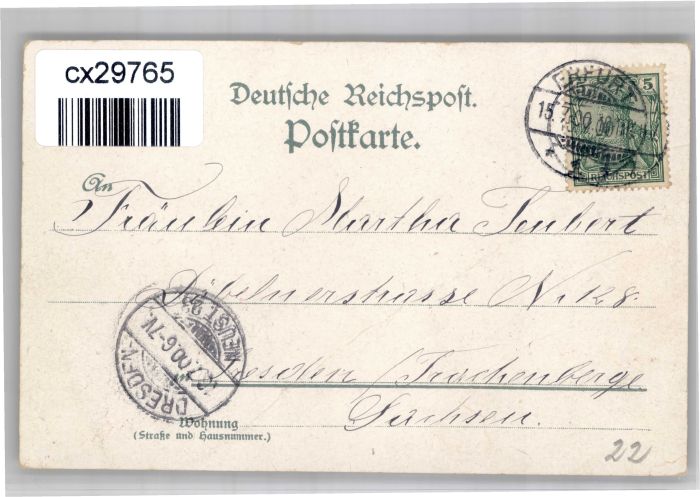 cx29765
Deutsche Reichspost.
Postkarte.
ERFURT
15.7.00
1
5
REICHSPOST
An
Fräulein Martha Teubert
Döbelnerstrasse No
Dresden / Trachenberge
Sachsen.
DRESDEN-NEUST.
.7.00.6-7V.
Wohnung
(Straße und Hausnummer.)
22